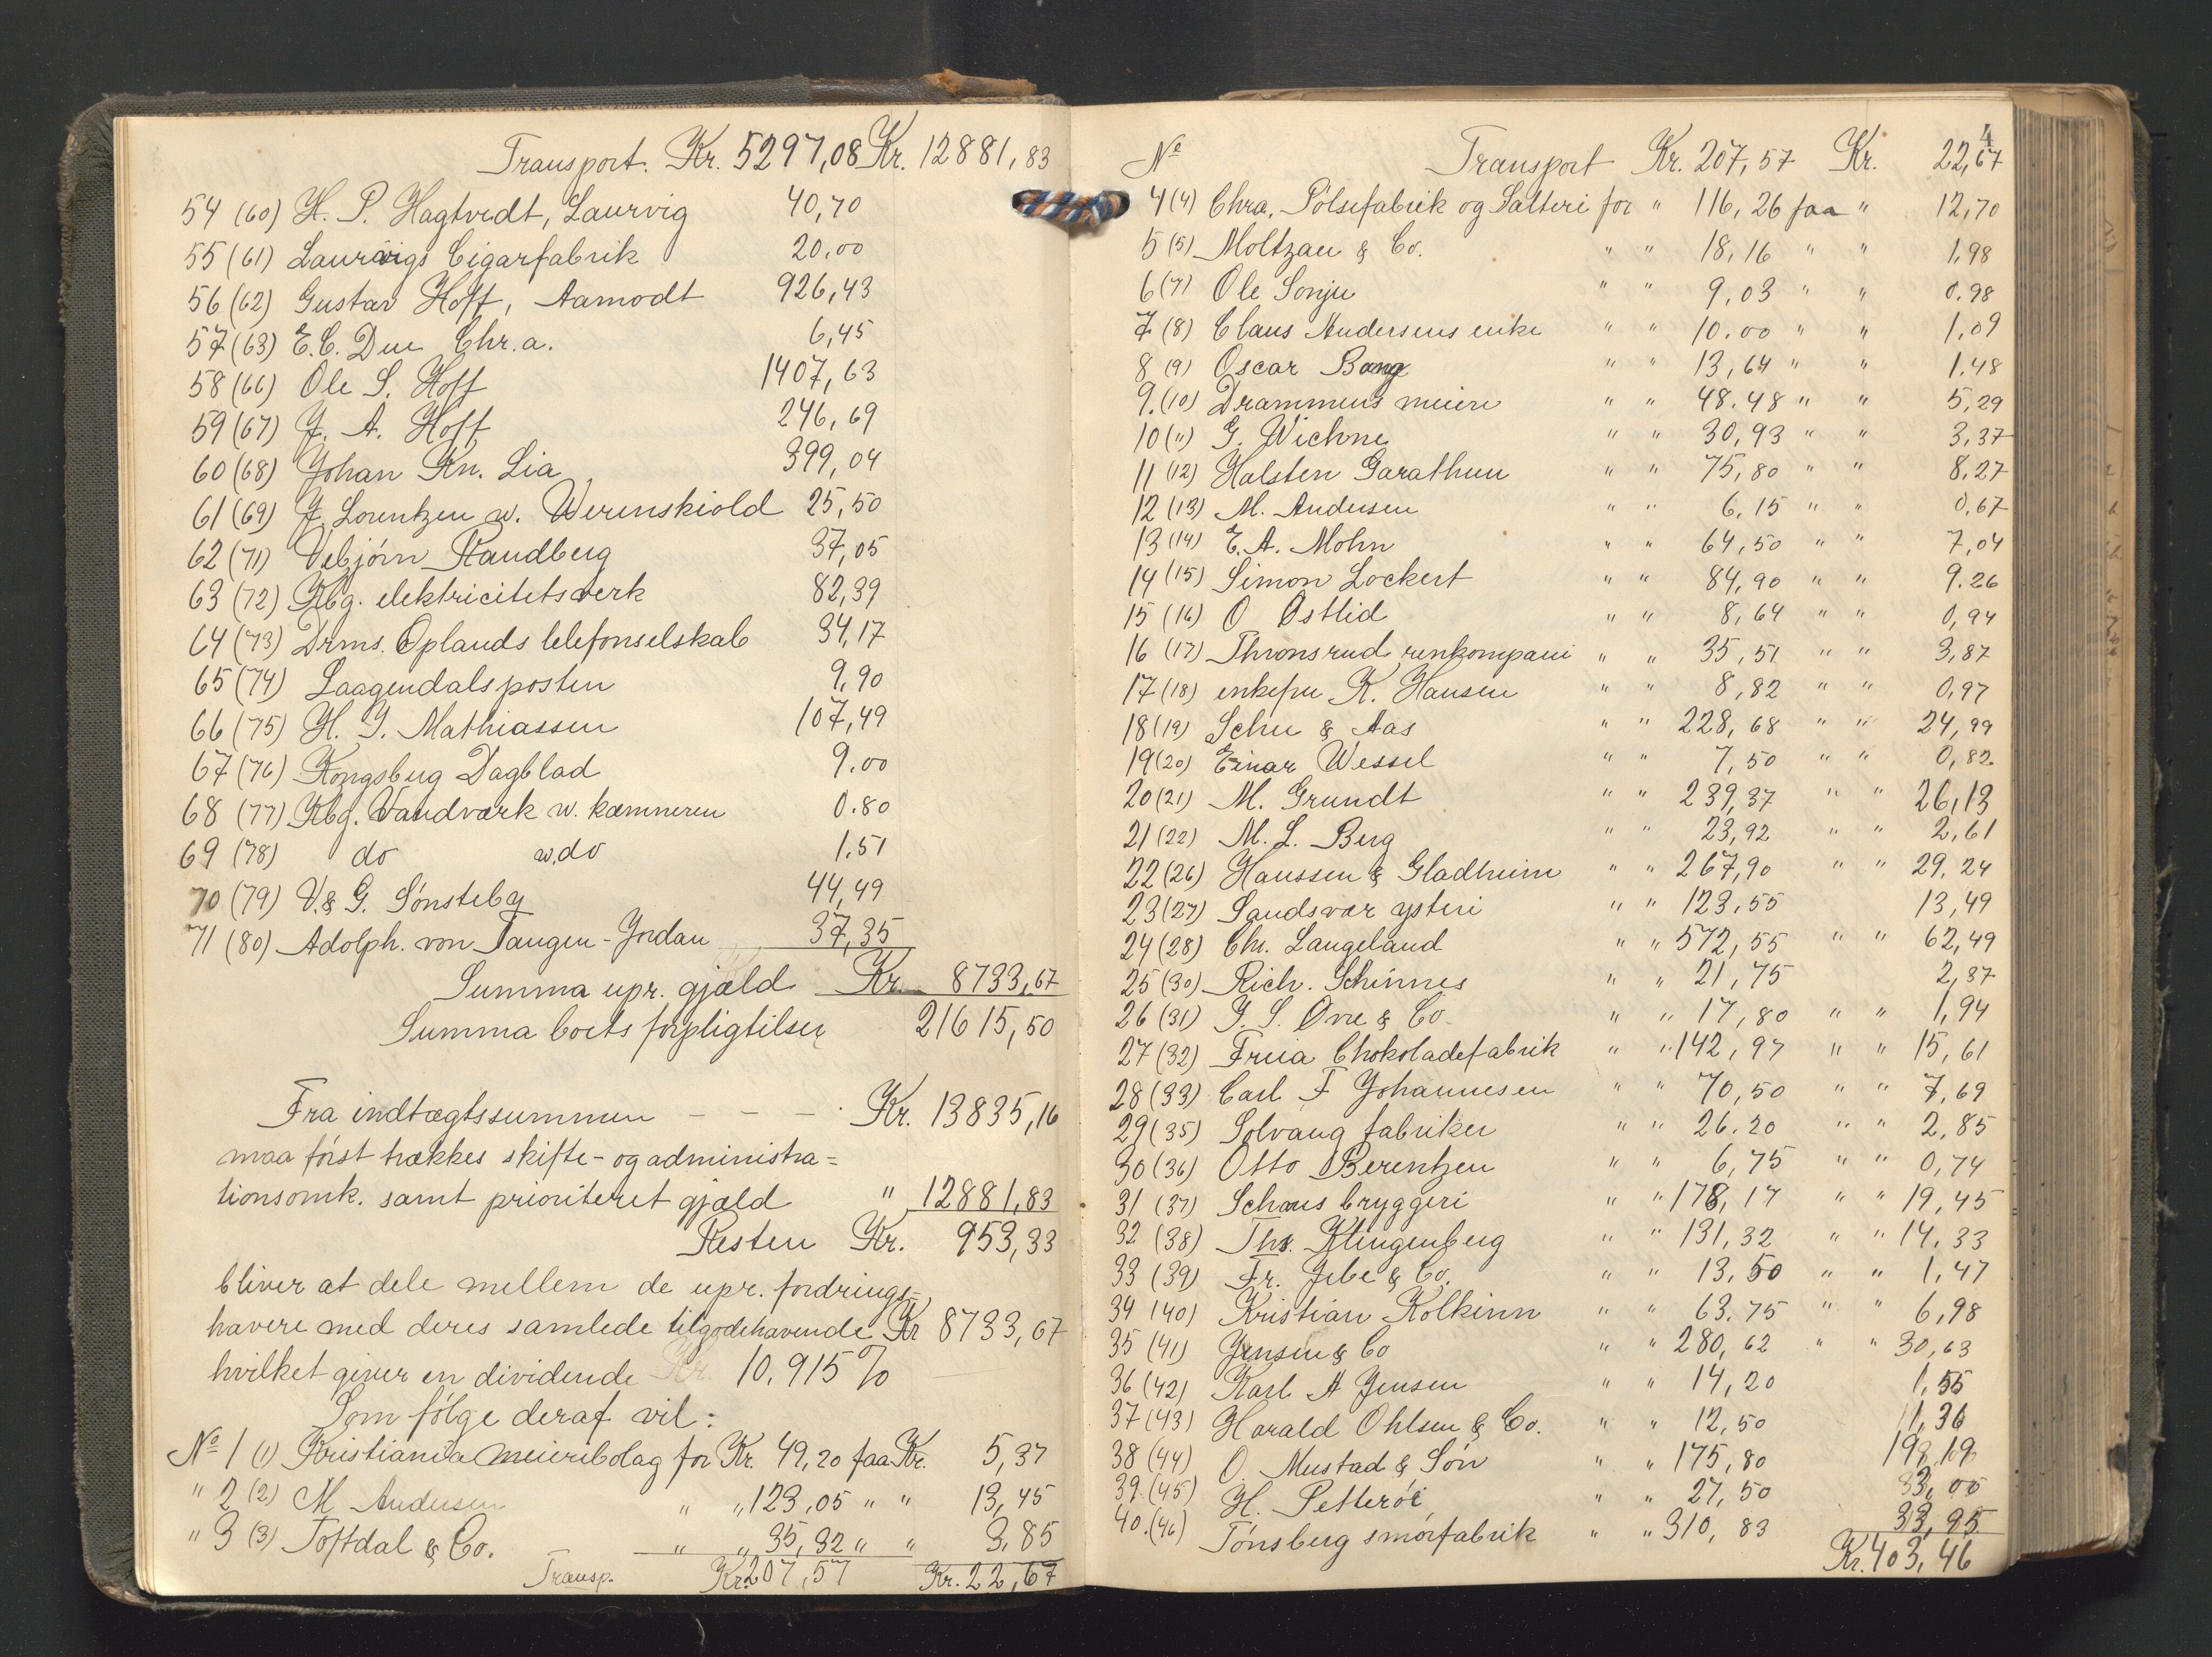 Transport. Kr. 5297,08 Kr. 12881,83
54 (60) H. P. Hagtvedt, Laurvig 40,70
55 (61) Laurvigs Cigarfabrik 20,00
56 (62) Gustav Hoff, Aamodt 926,43
57 (63) E. C. Due Chr.a. 6,45
58 (66) Ole S. Hoff 1407,63
59 (67) J. A. Hoff 246,69
60 (68) Johan Kn. Lia 399,04
61 (69) J. Lorentzen w. Werenskiold 25,50
62 (71) Vebjörn Randberg 37,05
63 (72) Kbg. elektricitetsverk 82,39
64 (73) Drms. Oplands telefonselskab 34,17
65 (74) Laagendalsposten 9,90
66 (75) H. J. Mathiassen 107,49
67 (76) Kongsberg Dagblad 9.00
68 (77) Kbg. Vandværk w. kæmneren 0.80
69 (78) do w. do 1.51
70 (79) V. & G. Sönsteby 44,49
71 (80) Adolph. von Tangen-Jordan 37,35
Summa upr. gjæld Kr. 8733,67
Summa boets forpligtilser 21615,50
Fra indtægtssummen - - - Kr. 13835,16
maa först trækkes skifte- og administra=
tionsomk. samt prioriteret gjæld " 12881,83
Resten Kr. 953,33
bliver at dele mellem de upr. fordrings-
havere med deres samlede tilgodehavende Kr 8733,67
hvilket giver en dividende Kr. 10,915 %
Som fölge deraf vil:
No 1 (1) Kristiania meieribolag for Kr. 49,20 faa Kr. 5,37
" 2 (2) M Andersen " " 123,05 " " 13,45
" 3 (3) Toftdal & Co. " " 35,32 " " 3,85
Transp. Kr. 207,57 Kr. 22,67
4
No Transport Kr. 207,57 Kr. 22,67
4 (4) Chra. Pölsefabrik og Salteri for " 116,26 faa " 12,70
5 (5) Moltzau & Co. " " 18,16 " " 1,98
6 (7) Ole Sonju " " 9,03 " " 0.98
7 (8) Claus Andersens enke " " 10.00 " " 1,09
8 (9) Oscar Bang " " 13,64 " " 1.48
9. (10) Drammens meieri " " 48.48 " " 5,29
10 (11) G. Wichne " " 30,93 " " 3,37
11 (12) Halsten Garathun " " 75,80 " " 8,27
12 (13) M. Andersen " " 6,15 " " 0,67
13 (14) E. A. Mohn " " 64,50 " " 7,04
14 (15) Simon Lockert " " 84,90 " " 9.26
15 (16) O Östlid " " 8,64 " " 0,94
16 (17) Thronsrud renkompani " " 35,51 " " 3,87
17 (18) enkefru K. Hansen " " 8,82 " " 0,97
18 (19) Schu & Aas " " 228,68 " " 24,99
19 (20) Einar Wessel " " 7,50 " " 0,82
20 (21) M. Grundt " " 239,37 " " 26,13
21 (22) M. L. Berg " " 23,92 " " 2,61
22 (26) Haussen & Gladheim " " 267,90 " " 29,24
23 (27) Sandsvær ysteri " " 123.55 13,49
24 (28) Chr. Langeland " " 572,55 " " 62,49
25 (30) Rich. Schinnes " " 21,75 2,37
26 (31) J. S. Övre & Co. " " 17,80 " " 1,94
27 (32) Freia Chokoladefabrik " " 142,97 " " 15,61
28 (33) Carl F Johannesen " " 70,50 " " 7,69
29 (35) Solvang fabriker " " 26.20 " " 2,85
30 (36) Otto Berentzen " " 6,75 " " 0,74
31 (37) Schous bryggeri " " 178,17 " " 19,45
32 (38) Ths. Klingenberg " " 131,32 " " 14,33
33 (39) Fr. Jebe & Co. " " 13,50 " " 1,47
34 (40) Kristian Kolkinn " " 63.75 " " 6,98
35 (41) Jensen & Co " " 280,62 " " 30,63
36 (42) Karl A Jensen " " 14,20 1,55
37 (43) Harald Ohlsen & Co. " " 12,50 1,36
38 (44) O. Mustad & Sön " " 175,80 19,19
39. (45) H. Petteröe " " 27,50 3,00
40. (46) Tönsberg smörfabrik " " 310,83 33,95
Kr. 403,46